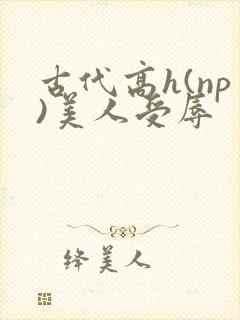 古代高h(np
)美人受辱
绛美人